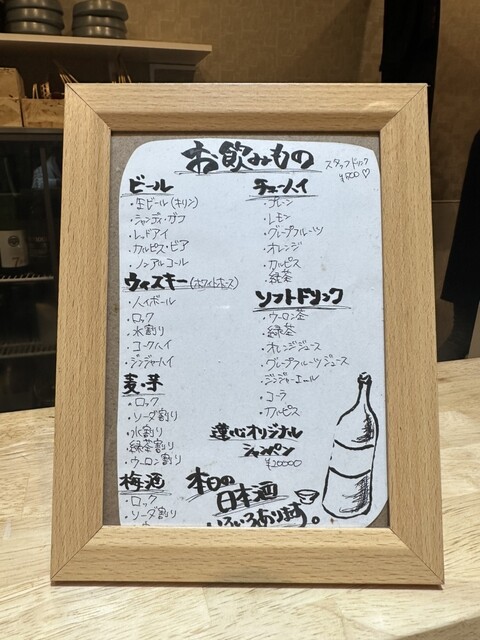 お飲みもの
スタッフドリンク
¥500♡
ビール
・生ビール(キリン)
・シャンディ・ガフ
・レッドアイ
・カルピス・ビア
・ノンアルコール
ウィスキー(ホワイトホース)
・ハイボール
・ロック
・水割り
・コークハイ
・ジンジャーハイ
麦・芋
・ロック
・ソーダ割り
・水割り
・緑茶割り
・ウーロン割り
梅酒
・ロック
・ソーダ割り
チューハイ
・プレーン
・レモン
・グレープフルーツ
・オレンジ
・カルピス
・緑茶
ソフトドリンク
・ウーロン茶
・緑茶
・オレンジジュース
・グレープフルーツジュース
・ジンジャーエール
・コーラ
・カルピス
蓮心オリジナル
シャンパン
¥20000
本日の
日本酒
いろいろあります。